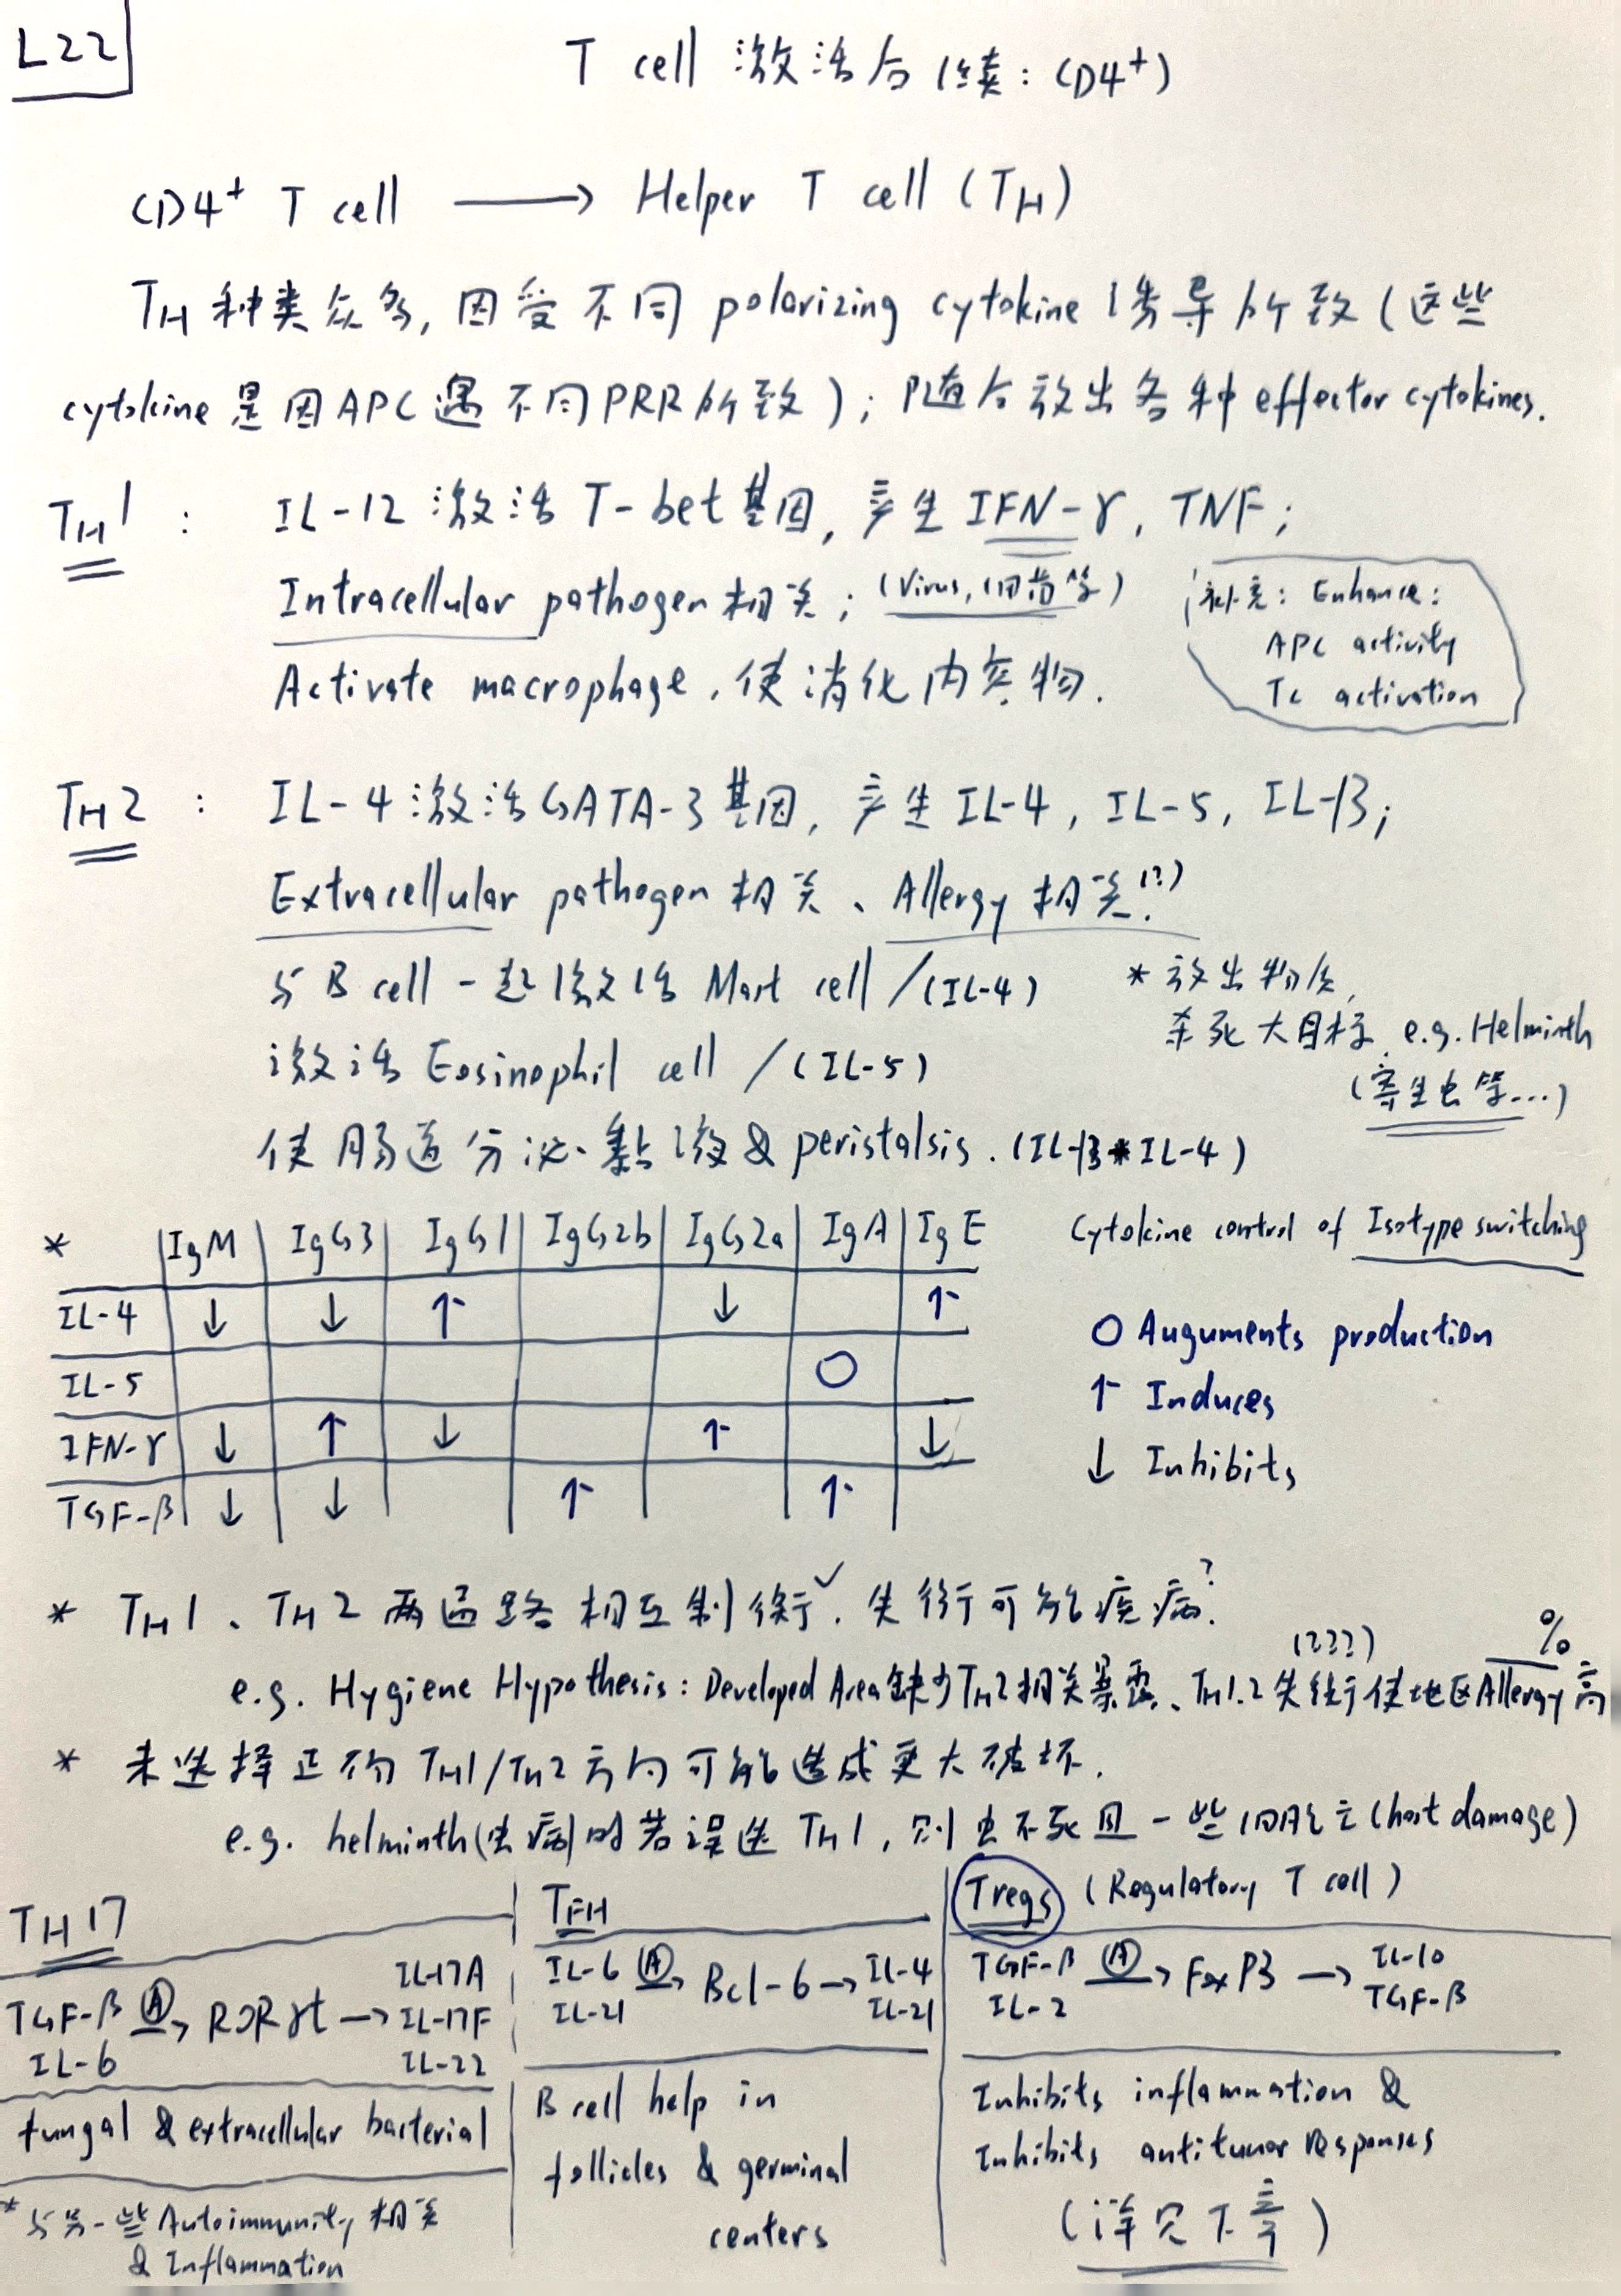 L22
T cell 激活后续: CD4⁺)
CD4⁺ T cell ⟶ Helper T cell (TH)
TH 种类众多, 因受不同 polarizing cytokine 诱导所致 (这些
cytokine 是因 APC 遇不同 PRR 所致); 随后放出各种 effector cytokines.
TH1 : IL-12 激活 T-bet 基因, 产生 IFN-γ, TNF;
Intracellular pathogen 相关; (Virus, 细菌等)
Activate macrophage, 使消化内容物.
补充: Enhance:
APC activity
Tc activation
TH2 : IL-4 激活 GATA-3 基因, 产生 IL-4, IL-5, IL-13;
Extracellular pathogen 相关、Allergy 相关!?)
与 B cell 一起激活 Mast cell /(IL-4)
激活 Eosinophil cell /(IL-5)
使肠道分泌黏液 & peristalsis. (IL-13 * IL-4)
* 放出物质,
杀死大目标 e.g. Helminth
(寄生虫等...)
* IgM IgG3 IgG1 IgG2b IgG2a IgA IgE
IL-4 ↓ ↓ ↑ ↓ ↑
IL-5 O
IFN-γ ↓ ↑ ↓ ↑ ↓
TGF-β ↓ ↓ ↑ ↑
Cytokine control of Isotype switching
O Auguments production
↑ Induces
↓ Inhibits
* TH1、TH2 两通路相互制衡✓. 失衡可能疾病?
e.g. Hygiene Hypothesis: Developed Area 缺少 TH2 相关暴露、TH1.2 失衡使地区 Allergy 高
(???) %
* 未选择正确 TH1/TH2 方向可能造成更大破坏.
e.g. helminth (虫病) 时若误选 TH1, 则虫不死且一些细胞亡 (host damage)
TH17
TGF-β IL-6 Ⓐ→ RORγt → IL-17A IL-17F IL-22
fungal & extracellular bacterial
* 与另一些 Autoimmunity 相关
& Inflammation
TFH
IL-6 IL-21 Ⓐ→ Bcl-6 → IL-4 IL-21
B cell help in
follicles & germinal
centers
Tregs (Regulatory T cell)
TGF-β IL-2 Ⓐ→ FoxP3 → IL-10 TGF-β
Inhibits inflammation &
Inhibits antitumor responses
(详见下章)